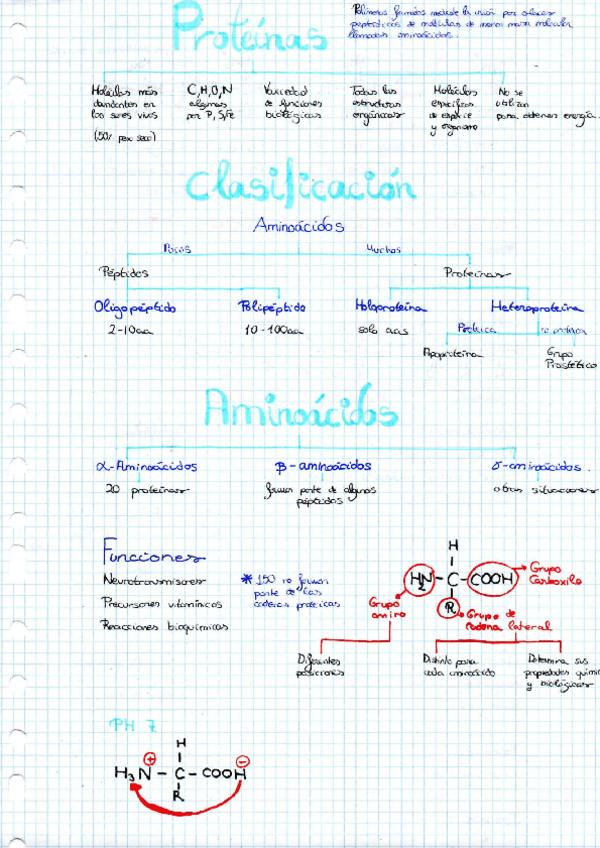 Proteínas
Polímeros formados mediante la unión por enlaces
peptídicos de moléculas de menor masa molecular
llamados aminoácidos.
Moléculas más
abundantes en
los seres vivos
(50% peso seco)
C,H,O,N
algunas
por P, S, Fe
Variedad
de funciones
biológicas
Todas las
estructuras
orgánicas
Moléculas
específicas
de especie
y organismo
No se
utilizan
para obtener energía.
Clasificación
Aminoácidos
Pocos
Muchos
Péptidos
Proteínas
Oligopéptido
Polipéptido
Holoproteína
Heteroproteína
2-10aa
10-100aa
solo aas
Proteica
no proteica
Apoproteína
Grupo
Prostético
Aminoácidos
α-Aminoácidos
β-aminoácidos
δ-aminoácidos.
20 proteínas
forman parte de algunos
péptidos
otras situaciones
Funciones
Neurotransmisores
Precursores vitamínicos
Reacciones bioquímicas
* 150 no forman
parte de las
cadenas proteicas
H
H2N - C - COOH
R
Grupo
Carboxilo
Grupo
amino
Grupo de
cadena lateral
Diferentes
posiciones
Distinto para
cada aminoácido
Determina sus
propiedades quími
y biológicas
PH 7
H
+
-
H3N - C - COOH
R